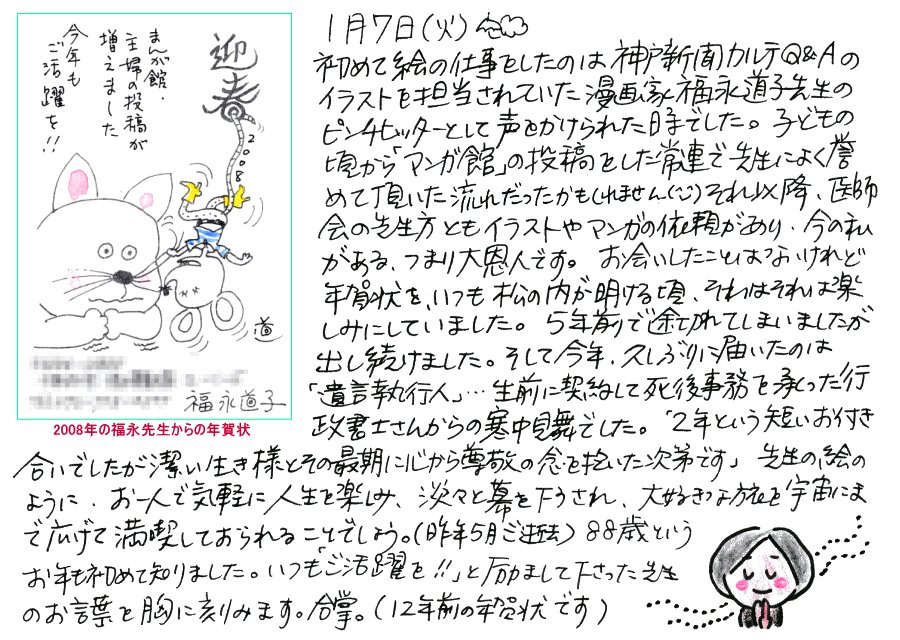 迎春
2008
まんが館・
主婦の投稿が
増えました
今年も
ご活躍を!!
道
福永道子
2008年の福永先生からの年賀状
1月7日(火)
初めて絵の仕事をしたのは神戸新聞カルテQ&Aの
イラストを担当されていた漫画家福永道子先生の
ピンチヒッターとして声をかけられた時でした。子どもの
頃から「マンガ館」の投稿をした常連で先生によく誉
めて頂いた流れだったかもしれません(^^)それ以降、医師
会の先生方ともイラストやマンガの依頼があり、今の私
がある、つまり大恩人です。お会いしたことはないけれど
年賀状を、いつも松の内が明ける頃、それはそれは楽
しみにしていました。5年前で途切れてしまいましたが
出し続けました。そして今年、久しぶりに届いたのは
「遺言執行人」…生前に契約して死後事務を承った行
政書士さんからの寒中見舞でした。「2年という短いお付き
合いでしたが潔い生き様とその最期に心から尊敬の念を抱いた次第です」先生の絵の
ように、お一人で気軽に人生を楽しみ、淡々と幕を下ろされ、大好きな方を宇宙にま
で広げて満喫しておられることでしょう。(昨年5月ご逝去)88歳という
お年も初めて知りました。いつも「ご活躍を!!」と励まして下さった先生
のお言葉を胸に刻みます。合掌。(12年前の年賀状です)